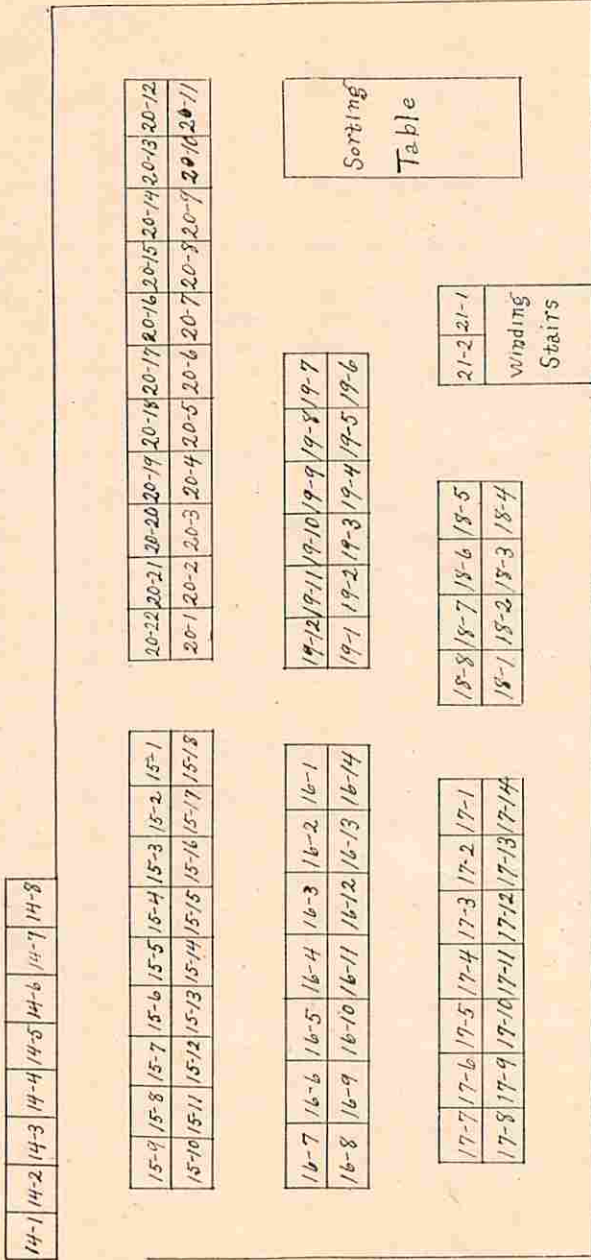 14-1 14-2 14-3 14-4 14-5 14-6 14-7 14-8
15-9 15-8 15-7 15-6 15-5 15-4 15-3 15-2 15-1
15-10 15-11 15-12 15-13 15-14 15-15 15-16 15-17 15-18
20-22 20-21 20-20 20-19 20-18 20-17 20-16 20-15 20-14 20-13 20-12
20-1 20-2 20-3 20-4 20-5 20-6 20-7 20-8 20-9 20-10 20-11
16-7 16-6 16-5 16-4 16-3 16-2 16-1
16-8 16-9 16-10 16-11 16-12 16-13 16-14
19-12 19-11 19-10 19-9 19-8 19-7
19-1 19-2 19-3 19-4 19-5 19-6
Sorting
Table
17-7 17-6 17-5 17-4 17-3 17-2 17-1
17-8 17-9 17-10 17-11 17-12 17-13 17-14
18-8 18-7 18-6 18-5
18-1 18-2 18-3 18-4
21-2 21-1
Winding
Stairs